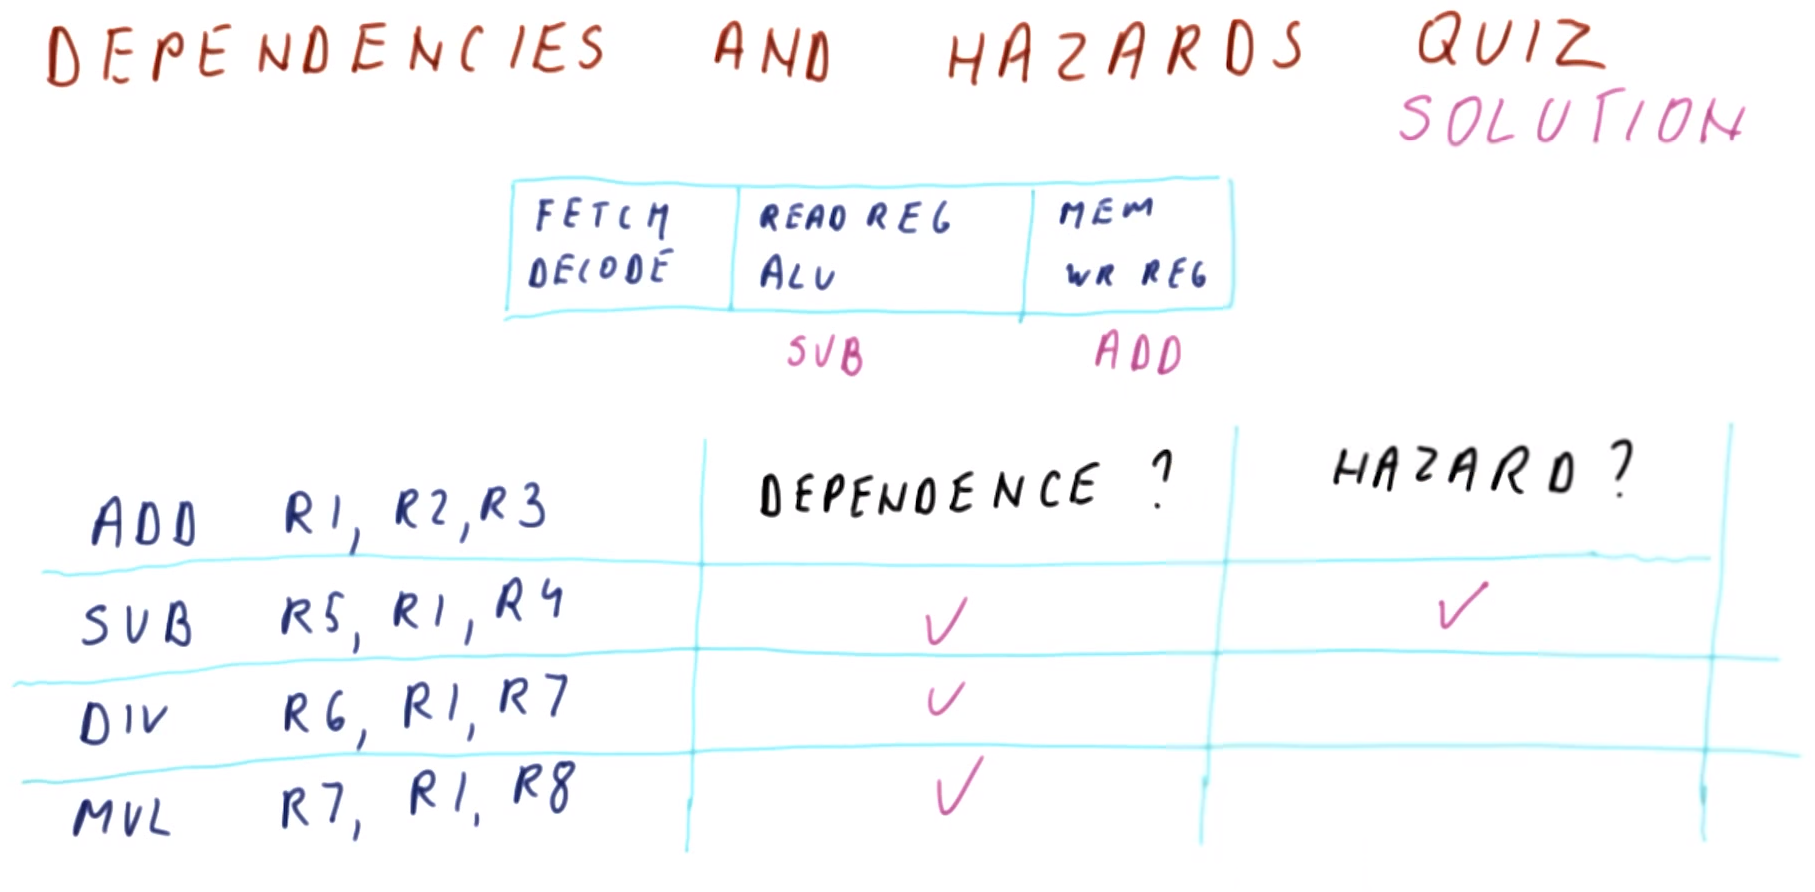 DEPENDENCIES AND HAZARDS QUIZ
SOLUTION
FETCH READ REG MEM
DECODE ALU WR REG
SUB ADD
DEPENDENCE ? HAZARD ?
ADD R1, R2, R3
SUB R5, R1, R4 ✓ ✓
DIV R6, R1, R7 ✓
MUL R7, R1, R8 ✓